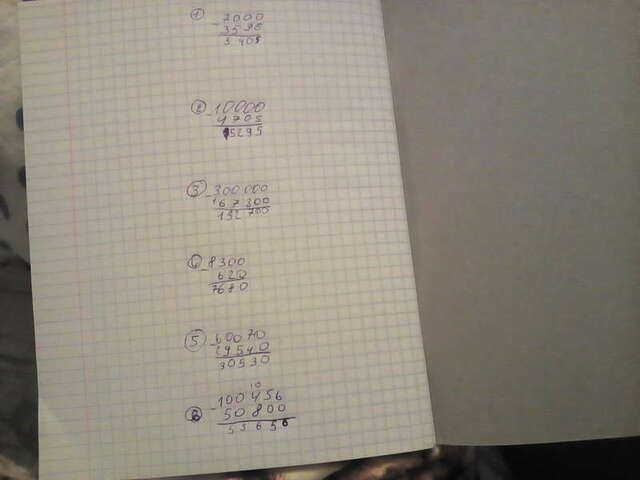 ① 7000
- 3595
3405
② 10000
- 4705
5295
③ 300000
- 167300
132700
④ 8300
- 620
7680
⑤ 60070
- 29540
30530
10
⑥ 100456
- 50800
53656